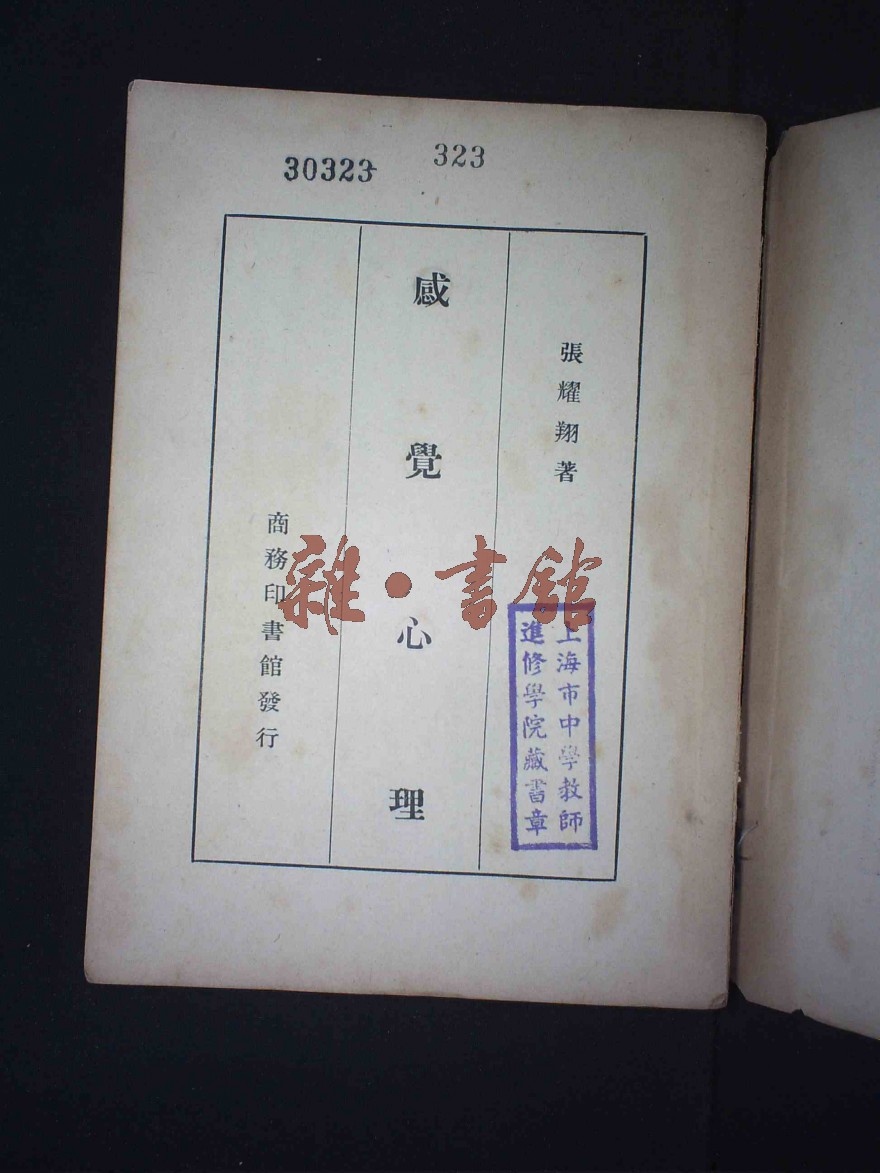 30323
323
張耀翔著
感覺心理
商務印書館發行
雜·書館
上海市中學教師
進修學院藏書章